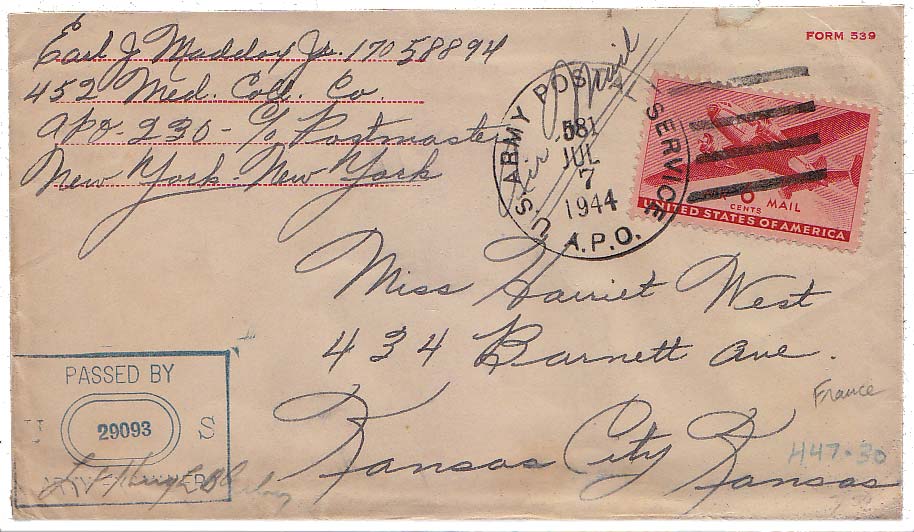 Earl J Maddox Jr. 17058894
452 Med. Coll. Co.
APO-230- c/o Postmaster
New York- New York
FORM 539
Air Mail
U.S. ARMY POSTAL SERVICE
581
JUL
7
1944
A.P.O.
CENTS MAIL
UNITED STATES OF AMERICA
Miss Harriet West
434 Barnett Ave.
Kansas City Kansas
France
447-30
PASSED BY
U 29093 S
ARMY EXAMINER